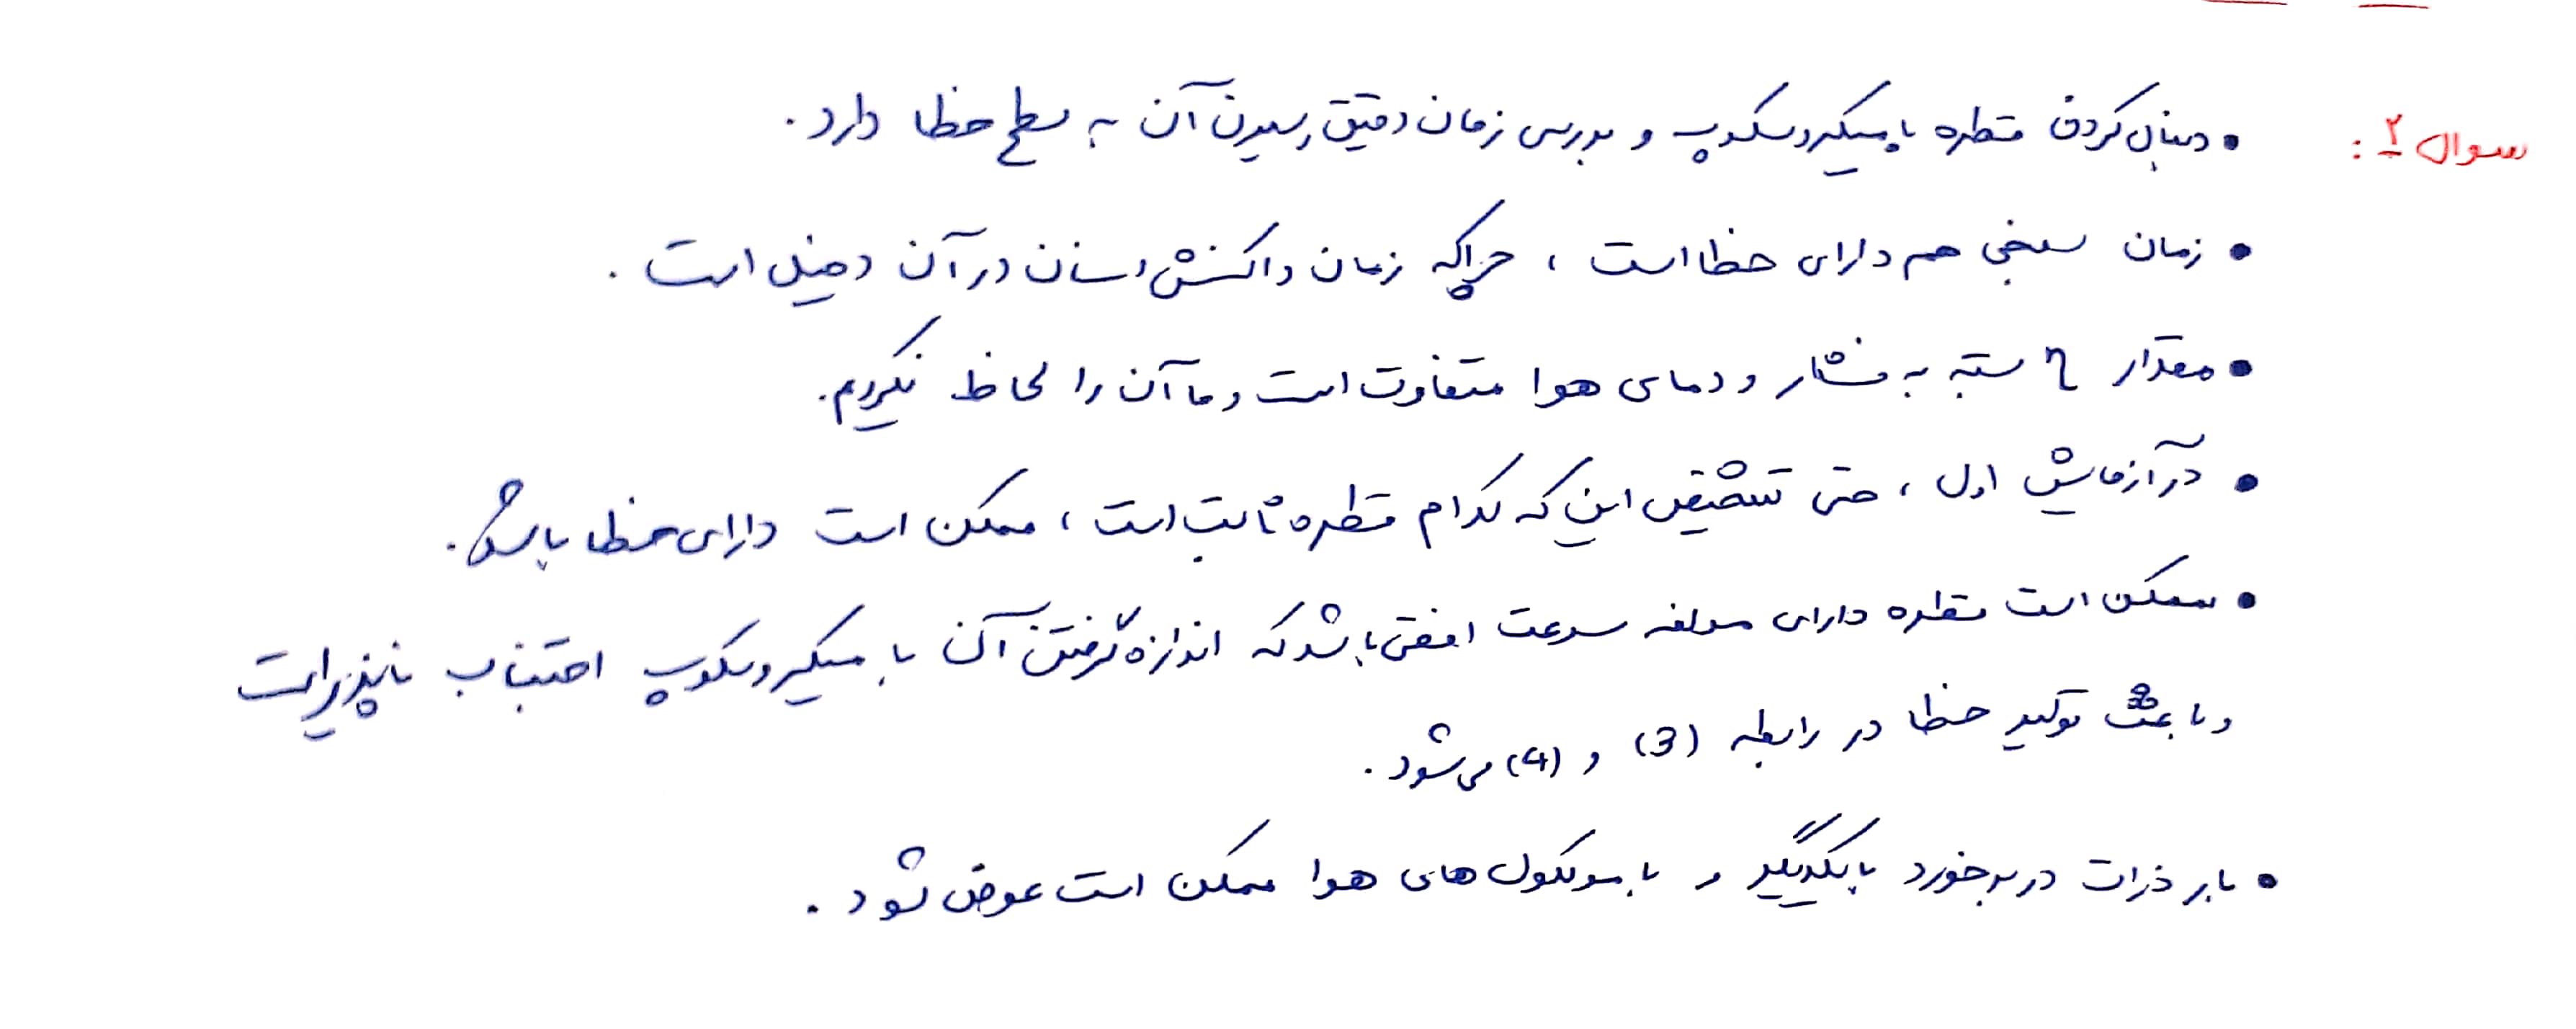 سوال ۲ : • دنبال کردن قطره با میکروسکوپ و بررسی زمان دقیق رسیدن آن به سطح خطا دارد.
• زمان سنجی هم دارای خطا است ، چراکه زمان واکنش انسان در آن دخیل است .
• مقدار η بسته به فشار و دمای هوا متفاوت است و ما آن را لحاظ نکردیم.
• در آزمایش اول ، حتی تشخیص این که کدام قطره ثابت است ، ممکن است دارای خطا باشد.
• ممکن است قطره دارای مولفه سرعت افقی باشد که اندازه گرفتن آن با میکروسکوپ اجتناب ناپذیر است
و باعث تولید خطا در رابطه (3) و (4) می شود .
• بار ذرات در برخورد با یکدیگر و با مولکول های هوا ممکن است عوض شود .